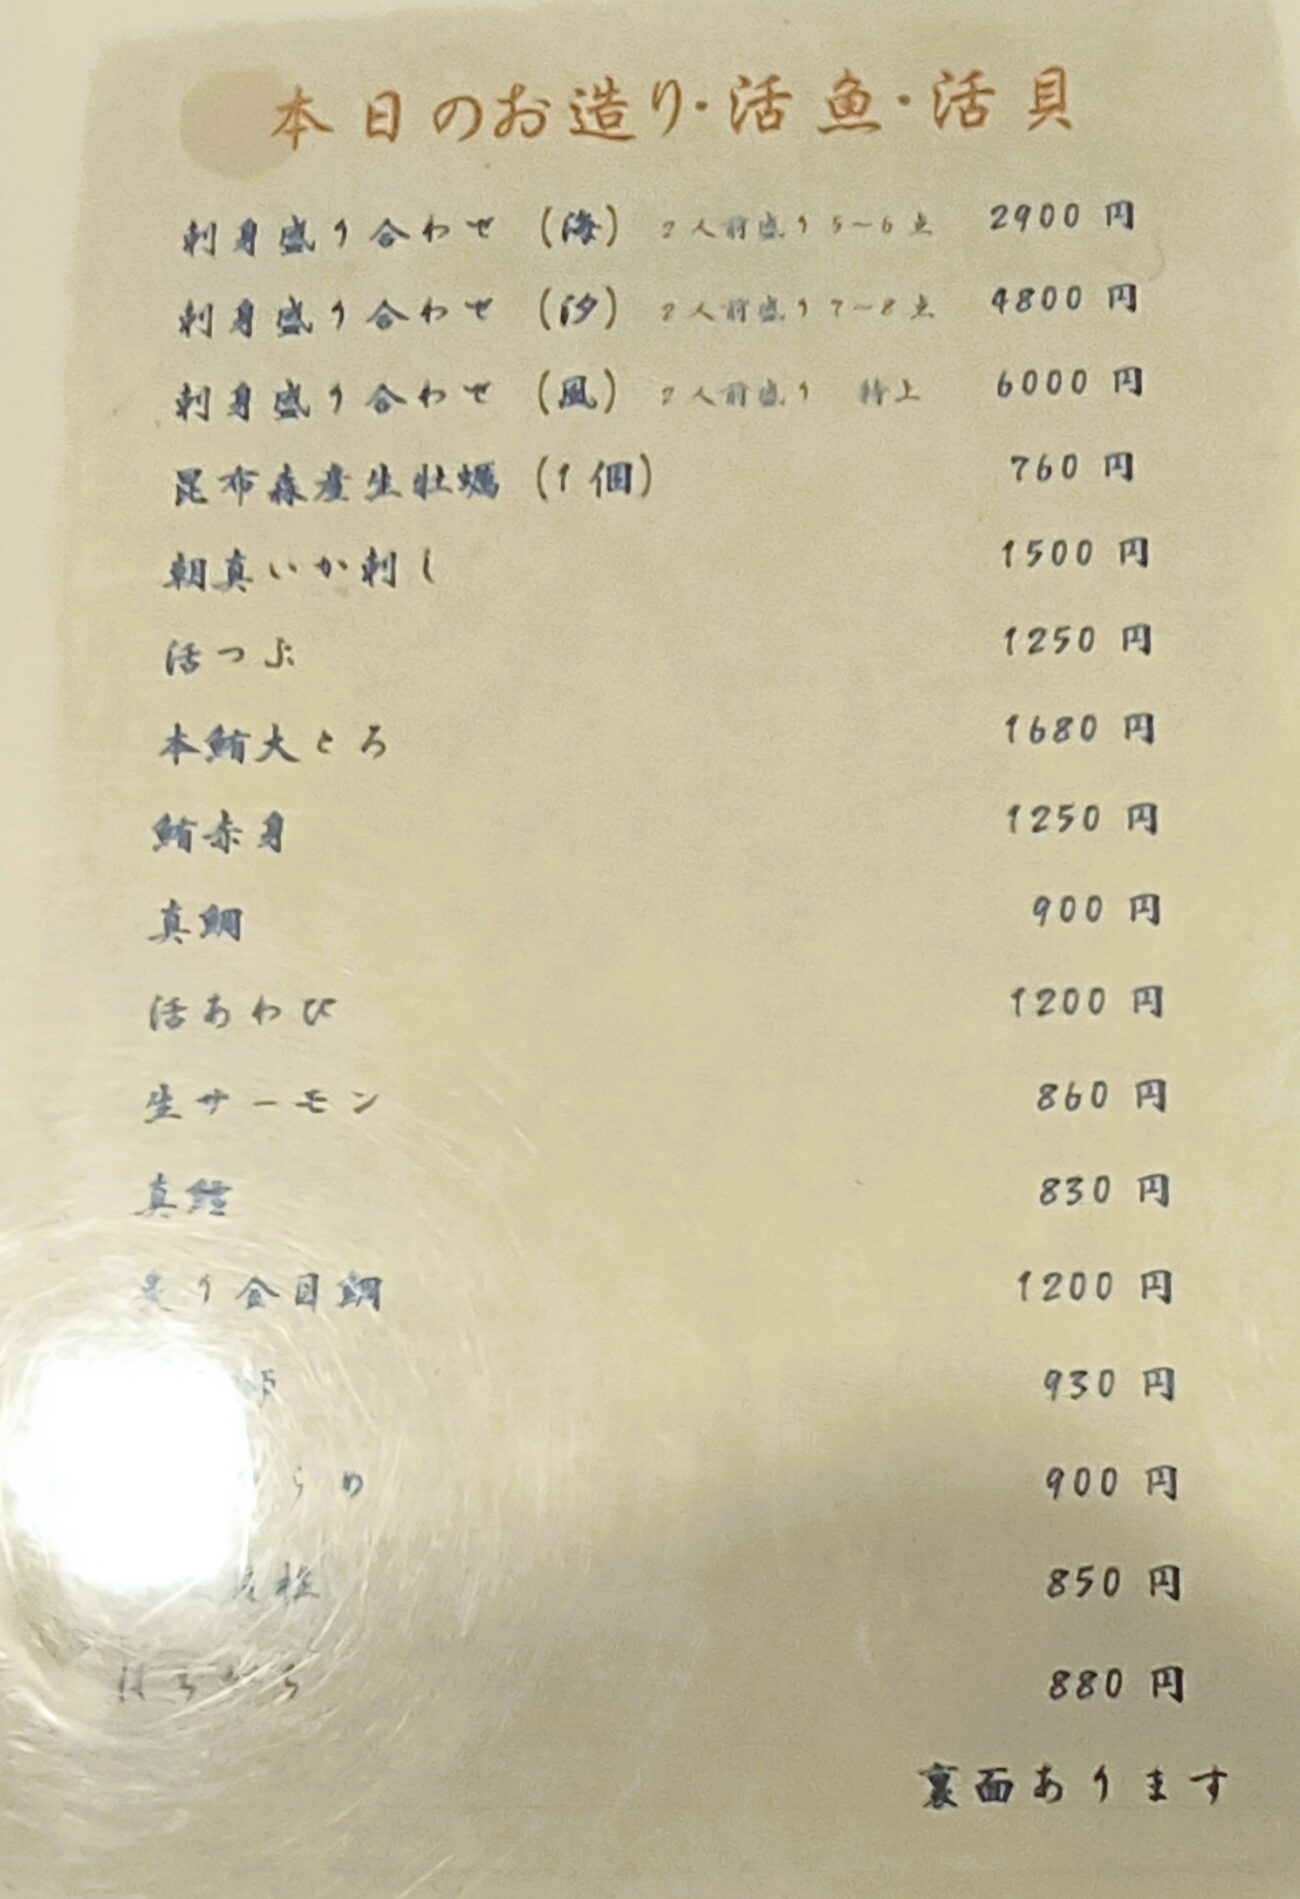 本日のお造り・活魚・活貝
刺身盛り合わせ (海) 2人前盛り5~6点 2900 円
刺身盛り合わせ (汐) 2人前盛り7~8点 4800 円
刺身盛り合わせ (風) 2人前盛り 特上 6000 円
昆布森産生牡蠣 (1個) 760 円
朝真いか刺し 1500 円
活つぶ 1250 円
本鮪大とろ 1680 円
鮪赤身 1250 円
真鯛 900 円
活あわび 1200 円
生サーモン 860 円
真鱈 830 円
炙り金目鯛 1200 円
930 円
らめ 900 円
貝柱 850 円
880 円
裏面あります